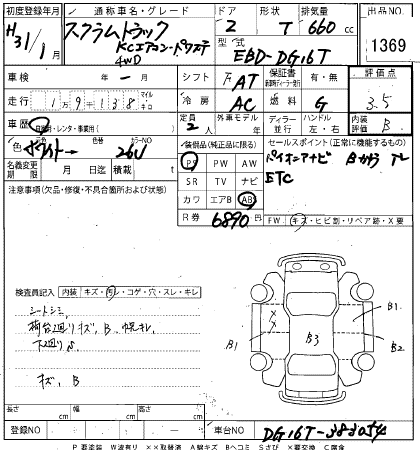 初度登録年月 通称車名・グレード ドア 形状 排気量 出品NO.
H31/1 スクラムトラック 2 T 660 cc
KCエアコン・パワステ 型式 1369
4WD EBD-DG16T
車検 年 - 月 シフト AT 保証書 有・無 評価点
走行 19,138 マイル キロ 冷房 AC 燃料 G 3.5
車歴 自家用・レンタ・事業用( ) 定員 2人 外車モデル ディーラー 並行 ハンドル 左・右 内装評価 B
色 ホワイト→ 色替 カラーNO 26U 装備品(純正品に限る) セールスポイント(正常に機能するもの)
名義変更期限 月 日迄 積載 t PS PW AW パイオニアナビ Bカメラ TV
注意事項(欠品・修復・不具合箇所および状態) SR TV ナビ ETC
カワ エアB ABS
R券 6890円 FW.(キズ・ヒビ割・リペア跡・X要
検査員記入 内装 キズ・汚レ・コゲ・穴・スレ・キレ
シートシミ
荷台廻りキズ、B 幌キレ
下廻りS
キズ、B
B1 B3 B1 B2
長さ cm 幅 cm 高さ cm
登録NO 車台NO DG16T-383054
P 要塗装 W波有リ ××取替済 A線キズ Bヘコミ Sさび ×要交換 C腐食